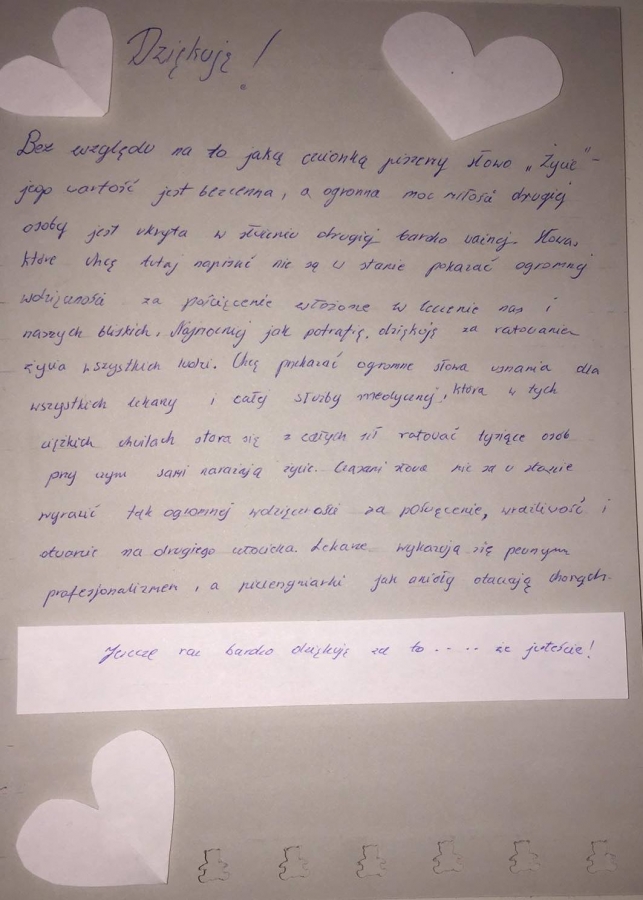 Dziękuję!
Bez względu na to jaką czcionką piszemy słowo „Życie” –
jego wartość jest bezcenna, a ogromna moc miłości drugiej
osoby jest ukryta w drugiej bardo ważnej. Słowa,
które chcę tutaj napisać nie są w stanie pokazać ogromnej
wdzięczności za poświęcenie włożone w leczenie nas i
naszych bliskich. Najmocniej jak potrafię, dziękuję za ratowanie
życia wszystkich ludzi. Chcę przekazać ogromne słowa uznania dla
wszystkich lekarzy i całej służby medycznej, która w tych
ciężkich chwilach stara się z całych sił ratować tysiące osób
przy czym sami narażają życie. Czasami słowa nie są w stanie
wyrazić tak ogromnej wdzięczności za poświęcenie, wrażliwość i
otwarcie na drugiego człowieka. Lekarze wykazują się pewnym
profesjonalizmem, a pielęgniarki jak anioły otaczają chorych.
Jeszcze raz bardzo dziękuję za to ..... że jesteście!